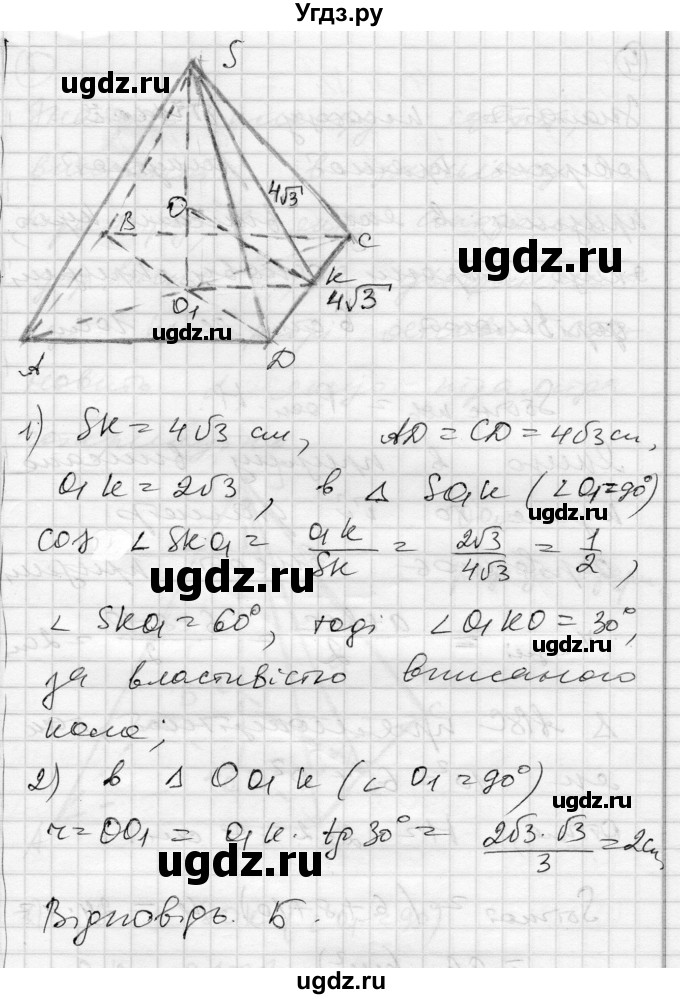 Угдз.ру
S
ugdz.ru
4√3
O
B
C
ugdz.ru
K
O₁
4√3
ugdz.ru
A
D
1) SK = 4√3 см, AD = CD = 4√3 см,
O₁K = 2√3, в △ SO₁K (∠O₁ = 90°)
ugdz.ru
cos ∠SKO₁ = O₁K/SK = 2√3/4√3 = 1/2,
ugdz.ru
∠SKO₁ = 60°, тоді ∠O₁KO = 30°,
ugdz.ru
за властивістю вписаного
кола;
2) в △ OO₁K (∠O₁ = 90°)
ugdz.ru
r = OO₁ = O₁K · tg 30° = 2√3·√3/3 = 2 см,
ugdz.ru
Відповідь. Б.
ugdz.ru
ugdz.ru